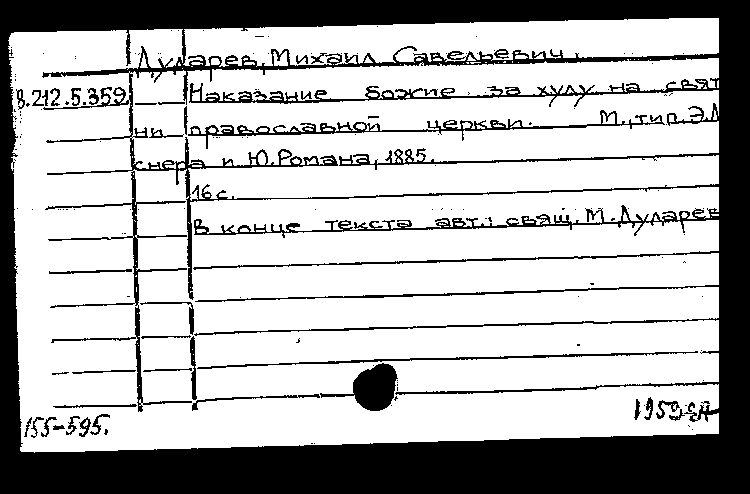 Дуларев, Михаил Савельевич.
8.212.5.359. Наказание божие за хулу на свят
ни православной церкви. М., тип. Э.Л
снера и Ю. Романа, 1885.
16 с.
В конце текста авт.: свящ. М. Дуларев
155-595.